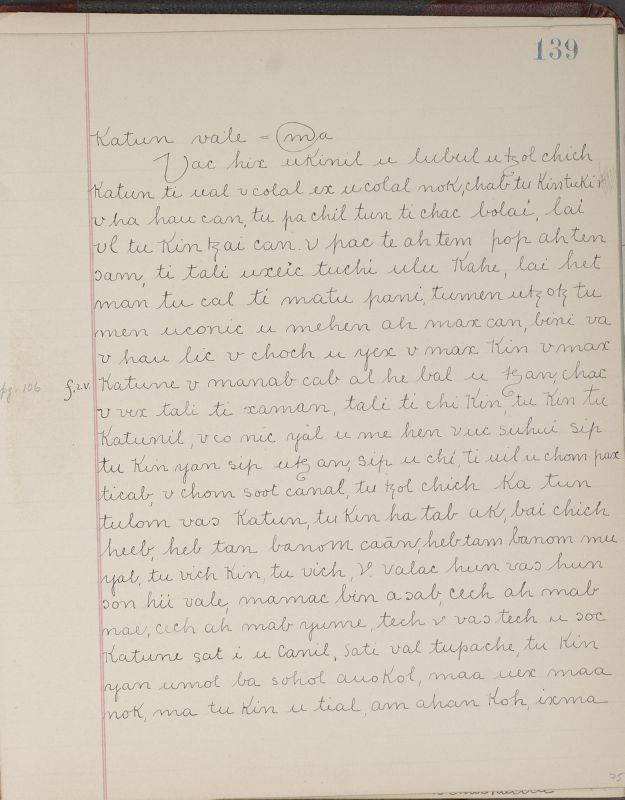 139
Katun vale = ma
Vac hix ukinil u lubul utzol chich
Katun ti ual v colal ex u colal nok, chab tu Kin tukin
v ha hau can, tu pa chil tun ti chac bolai, lai
vl tu Kin tzai can. v pac te ah tem pop ah ten
sam, ti tali uxeic tuchi ulu Kahe, lai het
man tu cal ti matu pani, tumen utz otz tu
men uconic u mehen ah max can, bini va
v hau lic v choch u yex v max Kin v max
pg. 106 f.2.v. Katune v manab cab al he bal u tzan, chac
v vex tali ti xaman, tali ti chi Kin, tu Kin tu
Katunil, v co nic yal u me hen vuc suhui sip
tu Kin yan sip utz an, sip u chi, ti uil u chom pax
ticab, v chom soot canal, tu tzol chich Ka tun
tulom vas Katun, tu Kin ha tab ak, bai chich
heeb, heb tan banom caān, heb tam banom mu
yal, tu vich Kin, tu vich, V. valac hun vas hun
son hii vale, mamac bin asab, cech ah mab
nae, cech ah mab yume, tech v vas tech u soc
Katune sat i u Canil, Sati val tupache, tu Kin
yan umol ba sohol auokol, maa uex maa
nok, ma tu Kin u tial, am ahan Koh, ixma
75